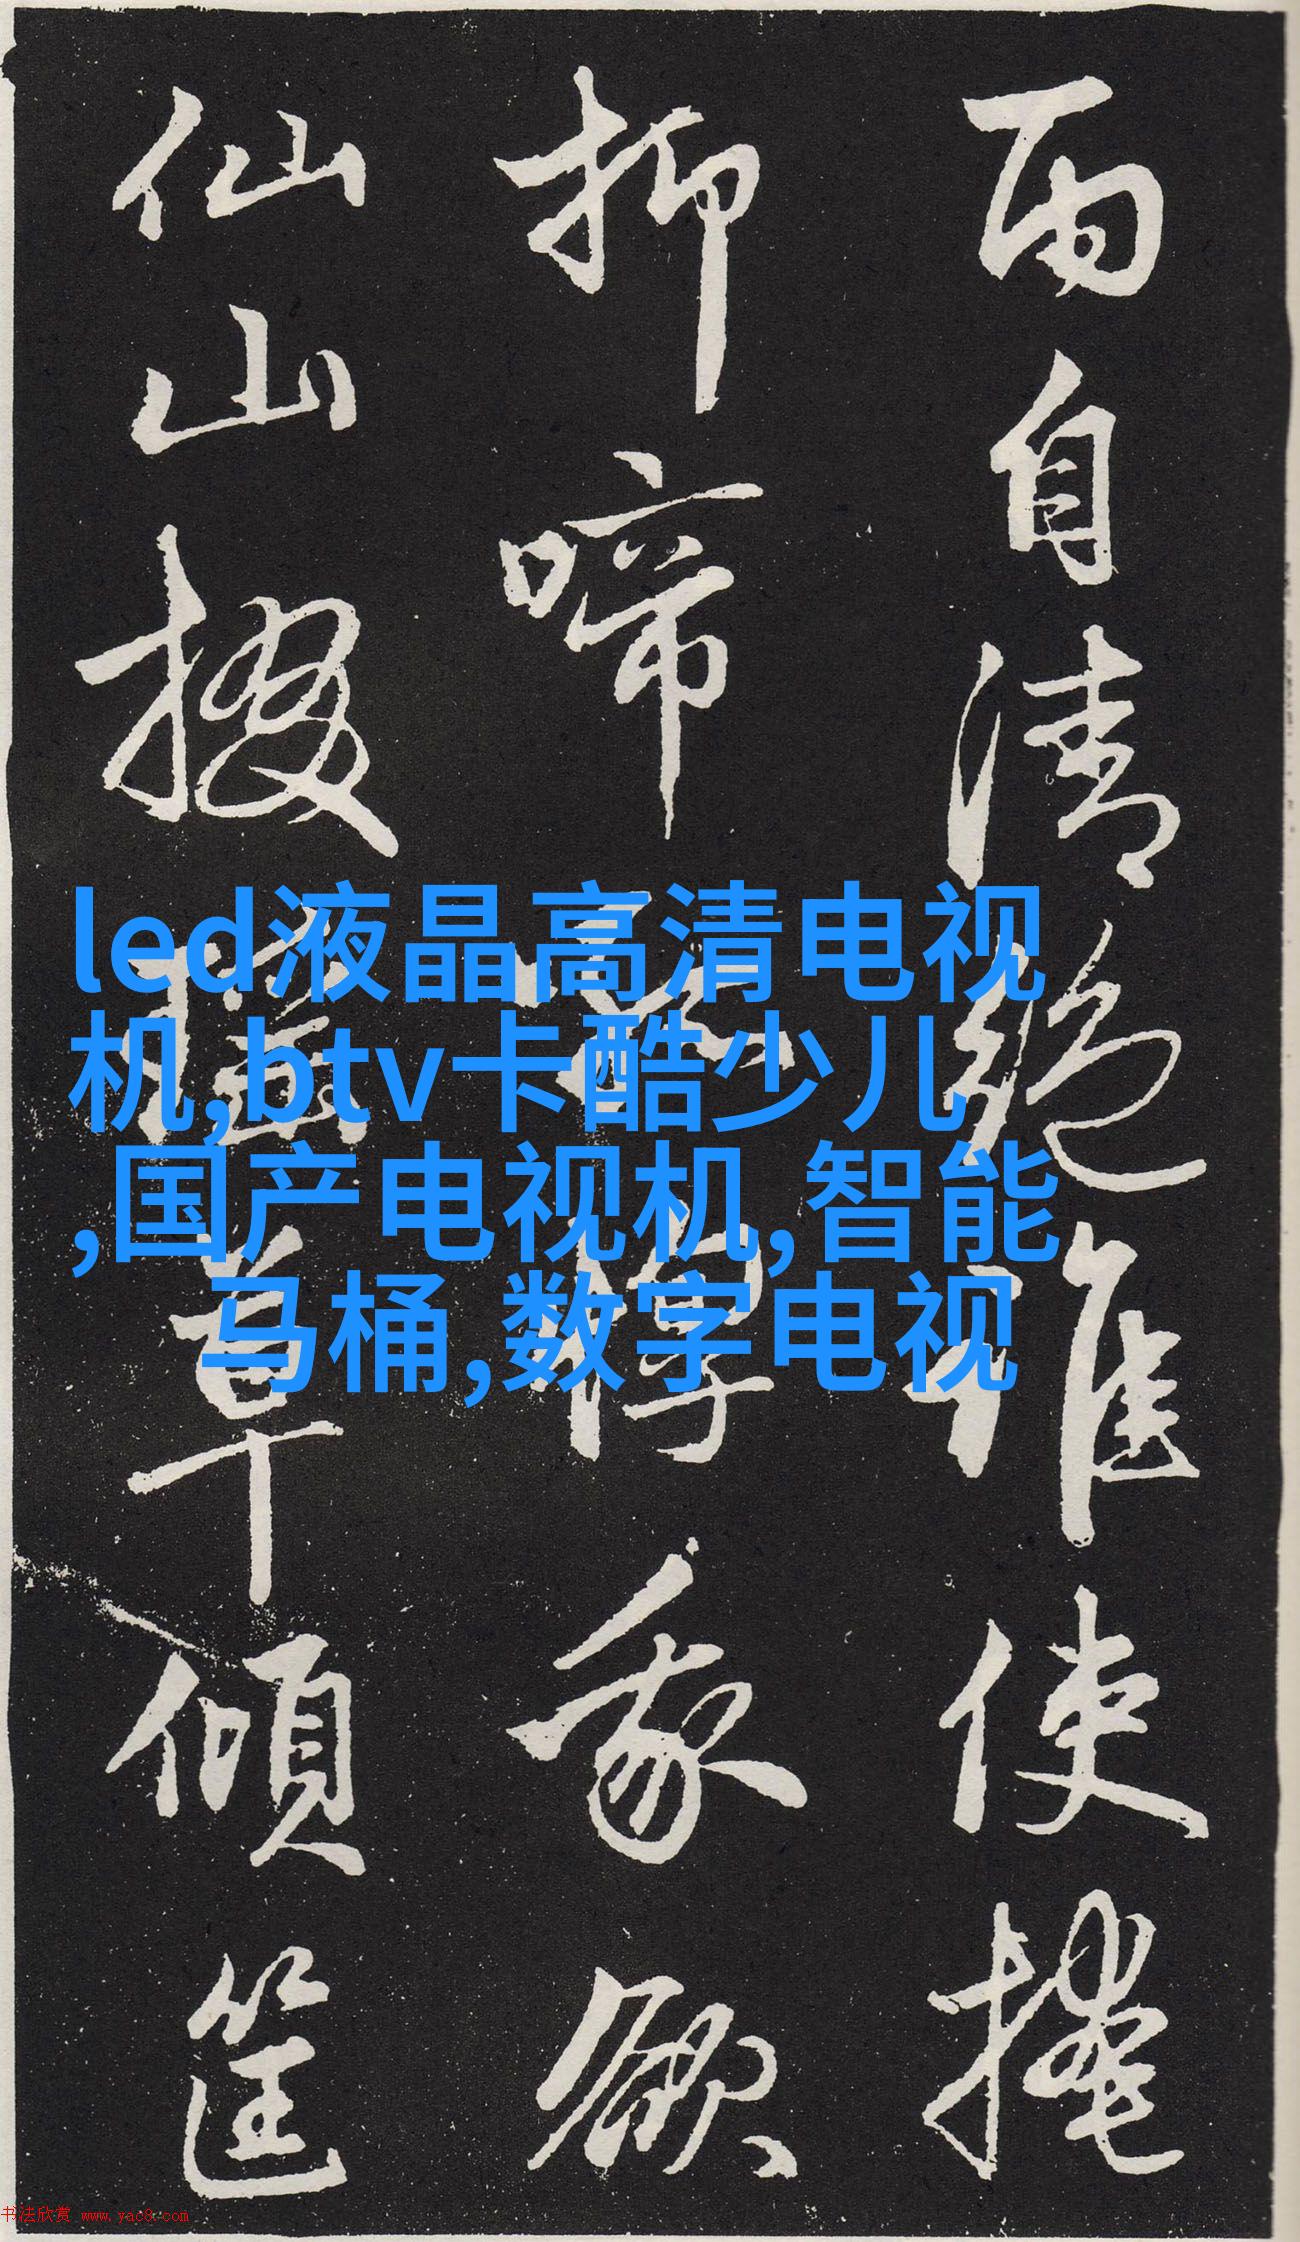 而自清絶誰使擁
抑啼
家欲
仙山掇
草傾筐
led液晶高清电视
机,btv卡酷少儿
,国产电视机,智能
马桶,数字电视
书法欣赏 www.yac8.com